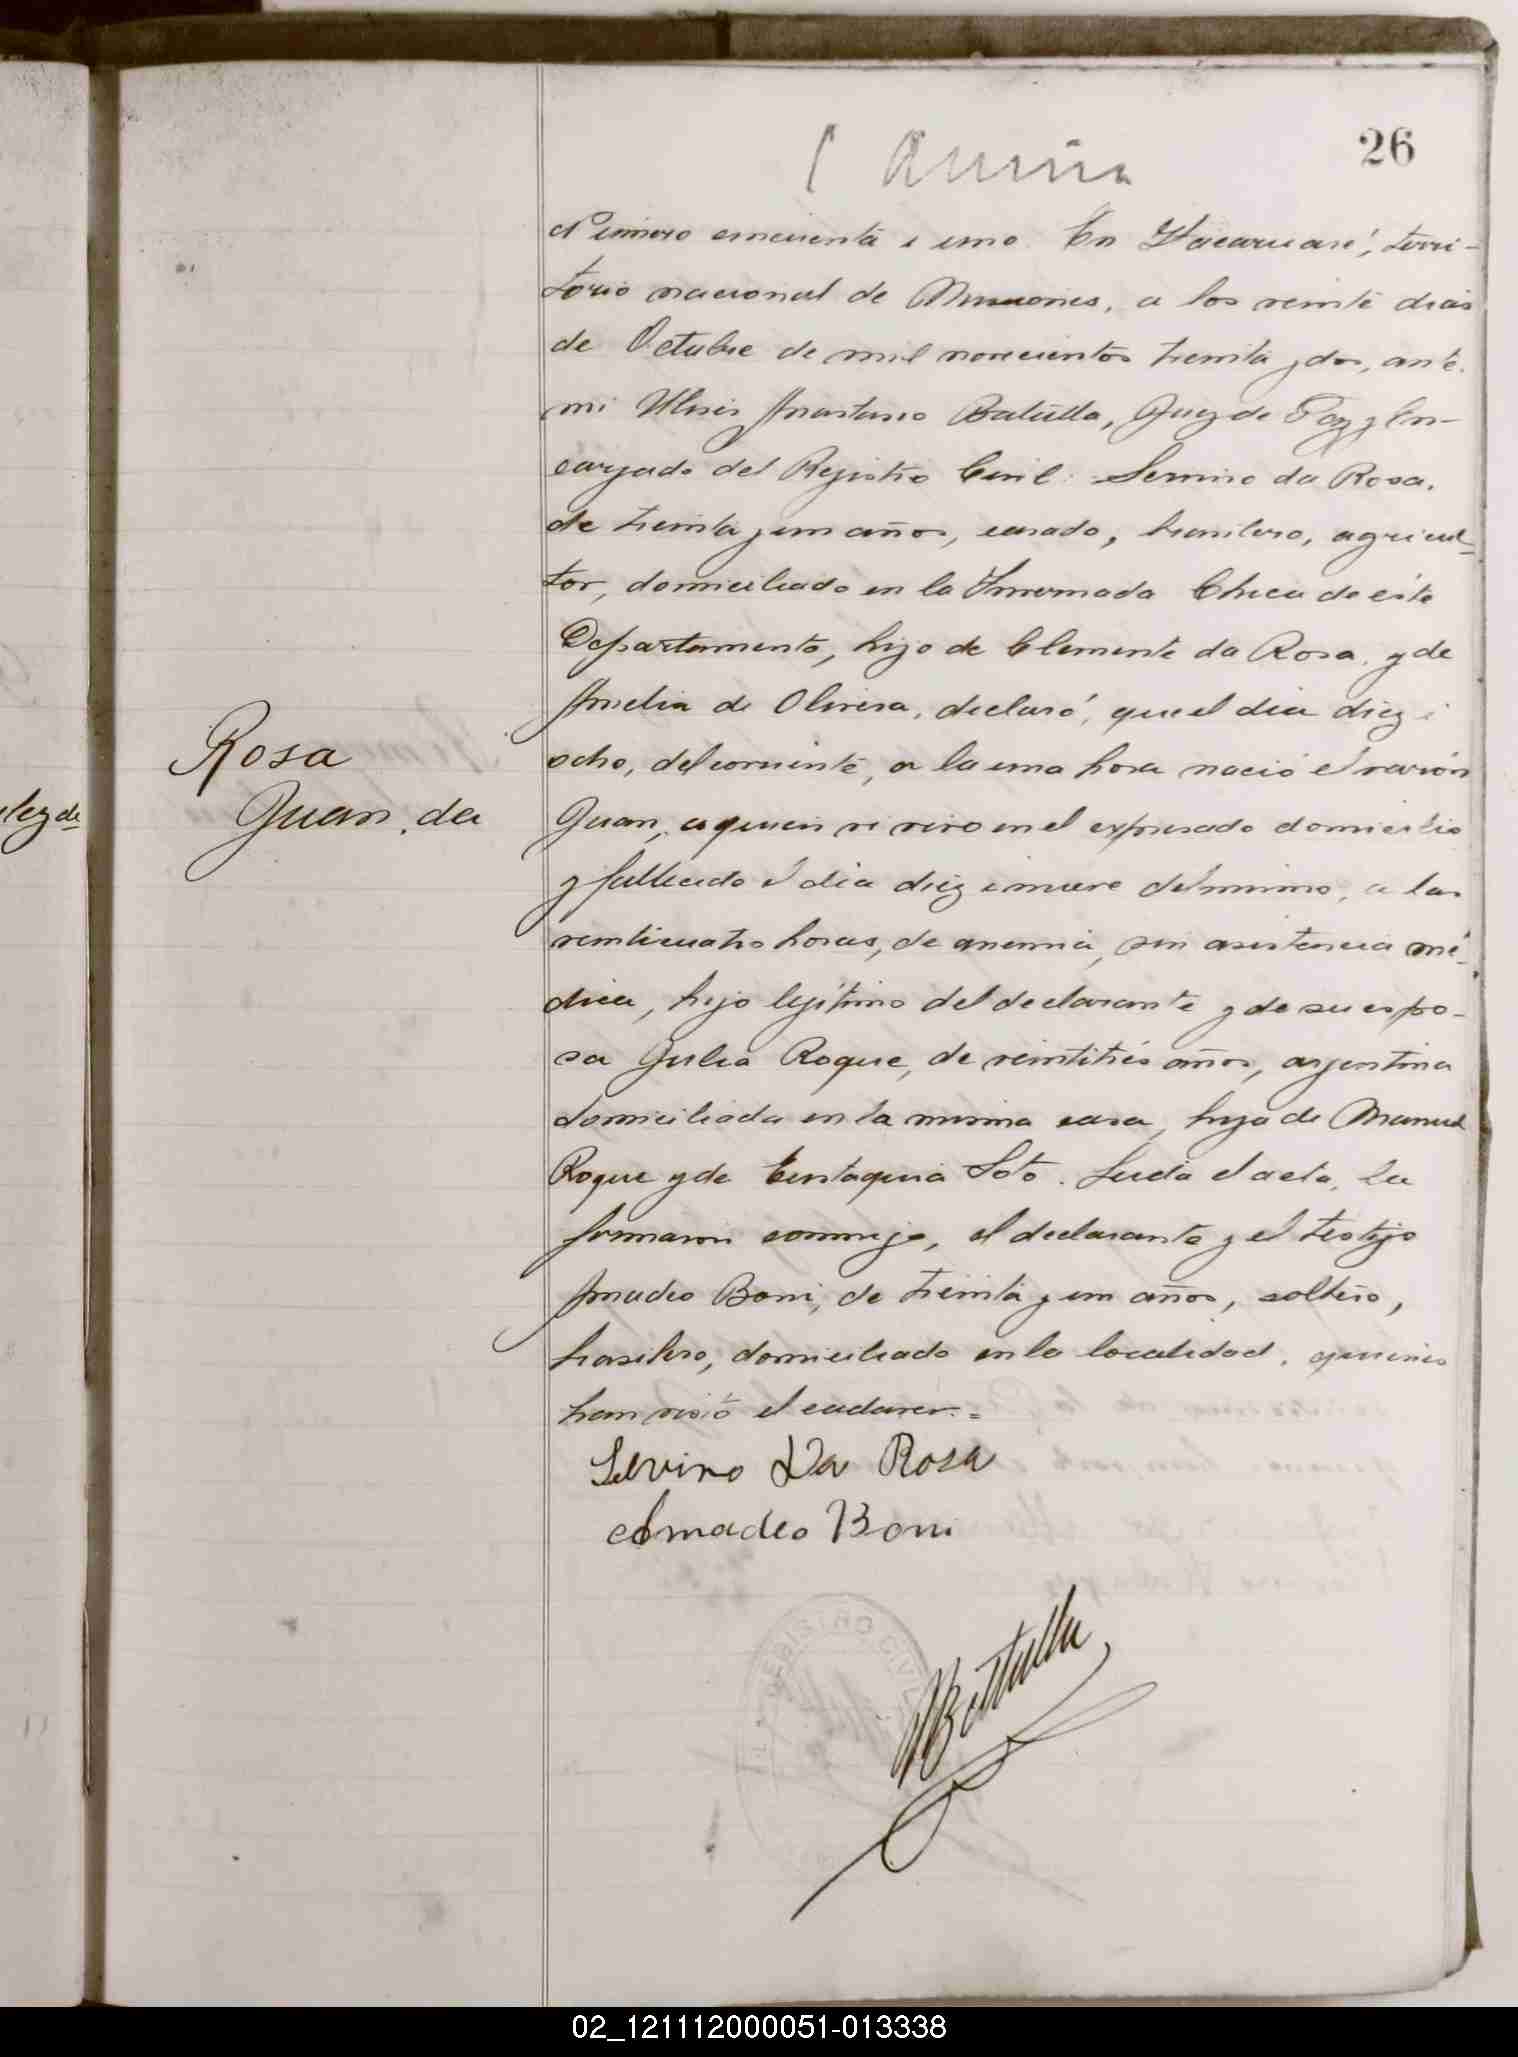 26
Numero cincuenta i uno. En Itacaruaré, terri-
torio nacional de Misiones, a los veinte dias
de Octubre de mil novecientos treinta y dos, ante
mi Ulises Anastasio Batulla, Juez de Paz y En-
cargado del Registro Civil: Servino da Rosa,
de treinta y un años, casado, brasilero, agricul-
tor, domiciliado en la Invernada Chica de éste
Departamento, hijo de Clemente da Rosa, y de
Amelia de Olivera, declaró, que el dia diez i
ocho, del corriente, a la una hora nació el varón
Rosa
Juan, da
Juan, a quien vi vivo en el expresado domicilio
y fallecido el dia diez i nueve del mismo, a las
veinticuatro horas, de anemia, sin asistencia mé-
dica, hijo legítimo del declarante y de su espo-
sa Julia Roque, de veintitrés años, argentina
domiciliada en la misma casa, hija de Manuel
Roque y de Eustaquia Soto. Leida el acta, la
firmaron conmigo, el declarante y el testigo
Amadeo Boni, de treinta y un años, soltero,
brasilero, domiciliado en la localidad, quienes
han visto el cadaver.=
Selvino Da Rosa
Amadeo Boni
REGISTRO CIVIL
Batulla
02_121112000051-013338